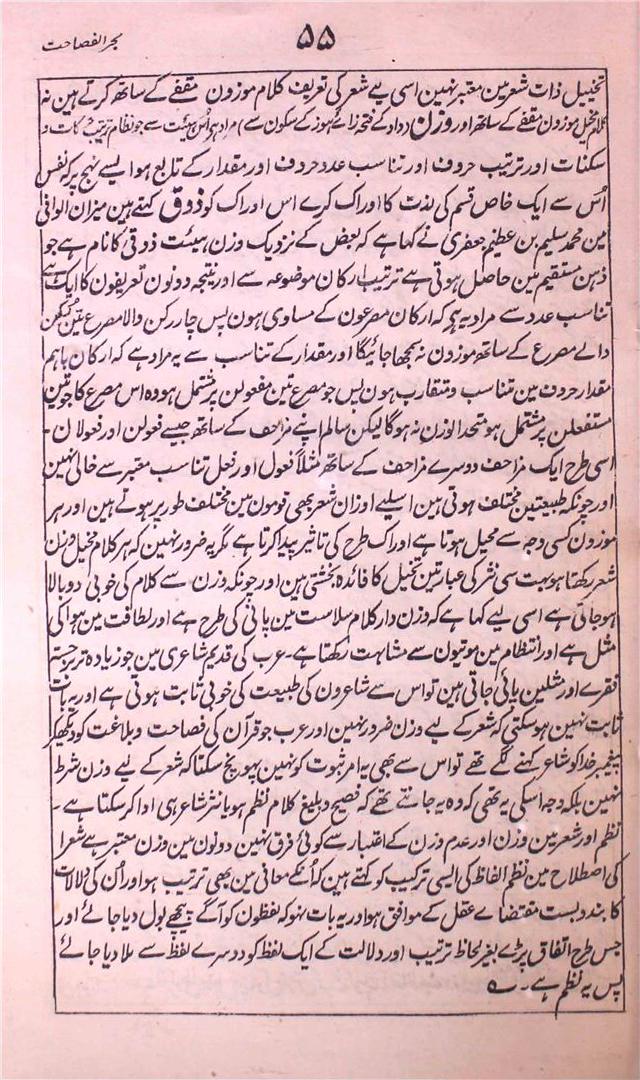 ۵۵
بحر الفصاحت
تخئیل ذات شعر مین معتبر نہین اسی لیے شعر کی تعریف کلام موزون مقفے کے ساتھ کرتے ہین نہ
کلام مخیل موزون مقفے کے ساتھ اور وزن (واو کے فتحہ زائے ہوز کے سکون سے) مراد ہے اُس ہیئت سے جو نظام ترتیب حرکات و
سکنات اور ترتیب حروف اور تناسب عدد حروف اور مقدار کے تابع ہو ایسے نہج پر کہ نفس
اُس سے ایک خاص قسم کی لذت کا ادراک کرے اس ادراک کو ذوق کہتے ہین میزان الوافی
مین محمد سلیم بن عظیم جعفری نے کہا ہے کہ بعض کے نزدیک وزن ہیئت ذوقی کا نام ہے جو
ذہن مستقیم مین حاصل ہوتی ہے ترتیب ارکان موضوعہ سے اور نتیجہ دونون تعریفون کا ایک ہے
تناسب عدد سے مراد یہ ہے کہ ارکان مصرعون کے مساوی ہون پس چار رکن والا مصرع تین رکن
والے مصرع کے ساتھ موزون نہ سمجھا جائیگا اور مقدار کے تناسب سے یہ مراد ہے کہ ارکان باہم
مقدار حروف مین متناسب و متقارب ہون پس جو مصرع تین مفعولن پر مشتمل ہو وہ اس مصرع کا جو تین
مستفعلن پر مشتمل ہو متحد الوزن نہ ہوگا لیکن سالم اپنے مزاحف کے ساتھ جیسے فعولن اور فعولان ۔
اسی طرح ایک مزاحف دوسرے مزاحف کے ساتھ مثلاً فعول اور فعل تناسب معتبر سے خالی نہین
اور چونکہ طبیعتین مختلف ہوتی ہین اسلیے اوزان شعر بھی قومون مین مختلف طور پر ہوتے ہین اور ہر
موزون کسی وجہ سے مخیل ہوتا ہے اور اک طرح کی تاثیر پیدا کرتا ہے مگر یہ ضرور نہین کہ ہر کلام مخیل وزن
شعر رکھتا ہو بہت سی نثر کی عبارتین تخیل کا فائدہ بخشتی ہین اور چونکہ وزن سے کلام کی خوبی دوبالا
ہو جاتی ہے اسی لیے کہا ہے کہ وزن دار کلام سلاست مین پانی کی طرح ہے اور لطافت مین ہوا کی
مثل ہے اور انتظام مین موتیون سے مشابہت رکھتا ہے ۔ عرب کی قدیم شاعری مین جو زیادہ تر برجستہ
فقرے اور مثلین پائی جاتی ہین تو اس سے شاعرون کی طبیعت کی خوبی ثابت ہوتی ہے اور یہ بات
ثابت نہین ہو سکتی کہ شعر کے لیے وزن ضرور نہین اور عرب جو قرآن کی فصاحت و بلاغت کو دیکھکر
پیغمبر خدا کو شاعر کہنے لگے تھے تو اس سے بھی یہ امر ثبوت کو نہین پہونچ سکتا کہ شعر کے لیے وزن شرط
نہین بلکہ وجہ اسکی یہ تھی کہ وہ یہ جانتے تھے کہ فصیح و بلیغ کلام نظم ہو یا نثر شاعر ہی ادا کر سکتا ہے ۔
نظم اور شعر مین وزن اور عدم وزن کے اعتبار سے کوئی فرق نہین دونون مین وزن معتبر ہے شعرا
کی اصطلاح مین نظم الفاظ کی ایسی ترکیب کو کہتے ہین کہ اُنکے معانی مین بھی ترتیب ہو اور اُن کی دلالات
کا بندوبست مقتضاے عقل کے موافق ہو اور یہ بات نہو کہ لفظون کو آگے پیچھے بول دیا جائے اور
جس طرح اتفاق پڑے بغیر لحاظ ترتیب اور دلالت کے ایک لفظ کو دوسرے لفظ سے ملا دیا جائے
پس یہ نظم ہے ۔